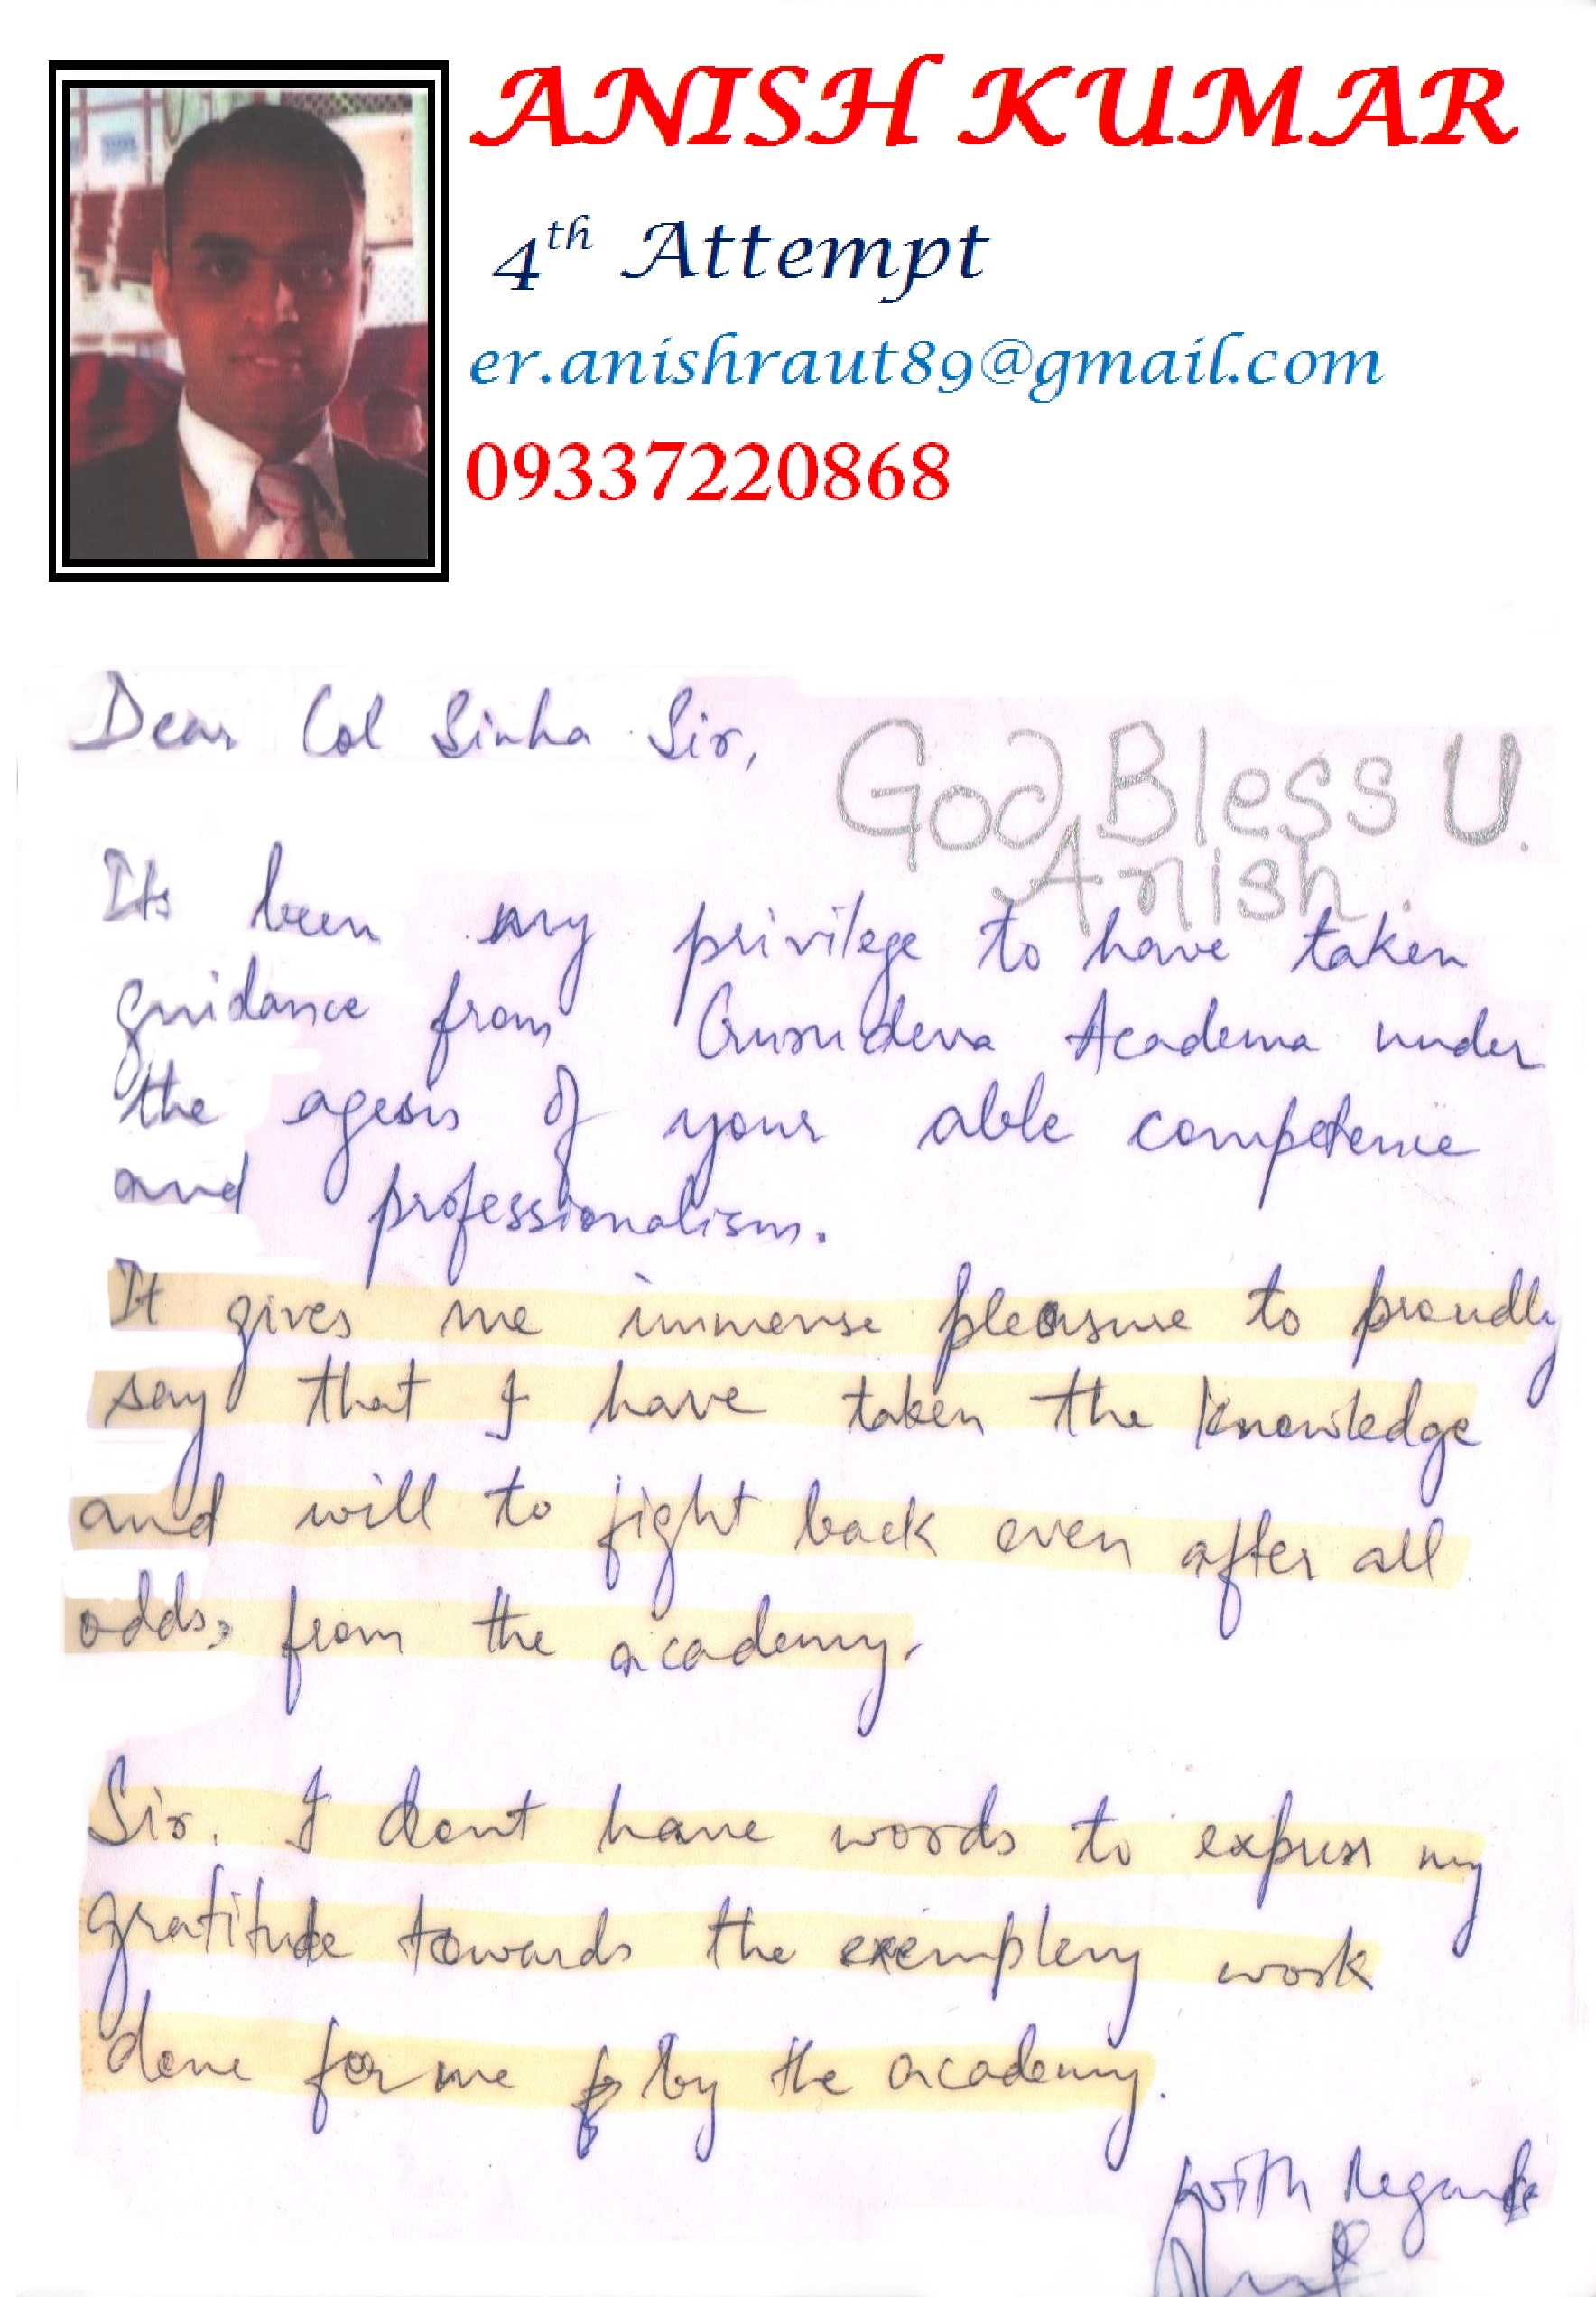 ANISH KUMAR
4th Attempt
er.anishraut89@gmail.com
09337220868
Dear Col Sinha Sir,
God Bless U.
Anish.
Its been my privilege to have taken
guidance from Gurudeva Academa under
the agesis of your able competence
and professionalism.
It gives me immense pleasure to proudly
say that I have taken the knowledge
and will to fight back even after all
odds, from the academy.
Sir. I dont have words to express my
gratitude towards the exemplery work
done for me by the academy.
with Regards